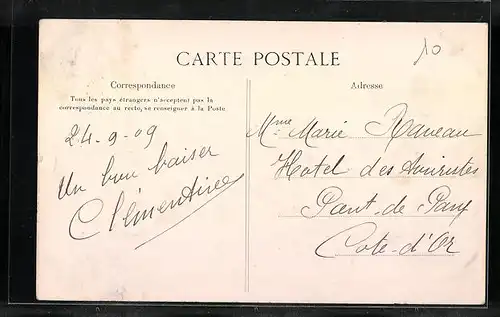 CARTE POSTALE
10
Correspondance
Tous les pays étrangers n'acceptent pas la
correspondance au recto, se renseigner à la Poste.
24-9-09
Un bon baiser
Clémentine
Adresse
Mme Marie Raveau
Hotel des Touristes
Pont-de-Pany
Cote-d'Or